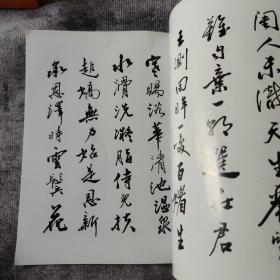 閨人未識天生
難自棄一朝選在君
王側回眸一笑百媚生
寒賜浴華清池溫泉
水滑洗凝脂侍兒扶
起嬌無力始是恩新
承恩澤時雲鬢花